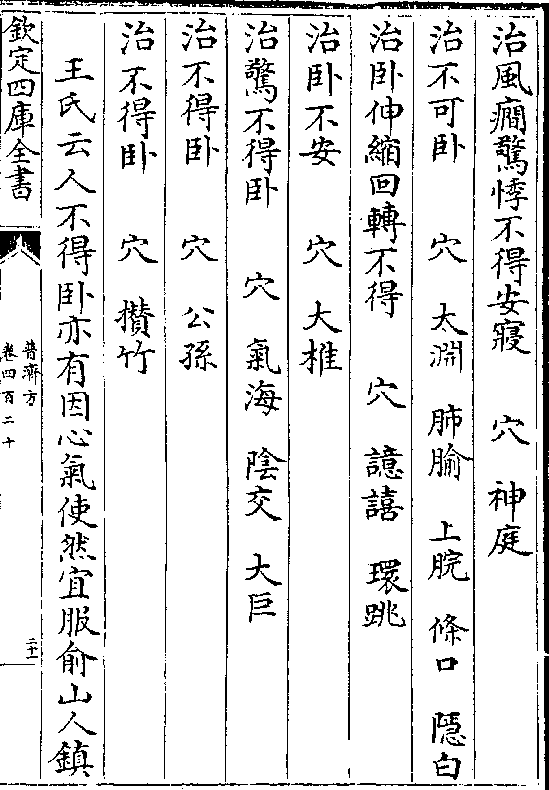 治風癇驚悸不得安寢　穴　神庭
治不可卧　穴　太淵　肺腧　上脘　條口　隱白
治卧伸縮回轉不得　穴　譩譆　環跳
治卧不安　穴　大椎
治驚不得卧　穴　氣海　陰交　大巨
治不得卧　穴　公孫
治不得卧　穴　攢竹
王氏云人不得卧亦有因心氣使然宜服俞山人鎮
欽定四庫全書
普濟方
卷四百二十
二十一